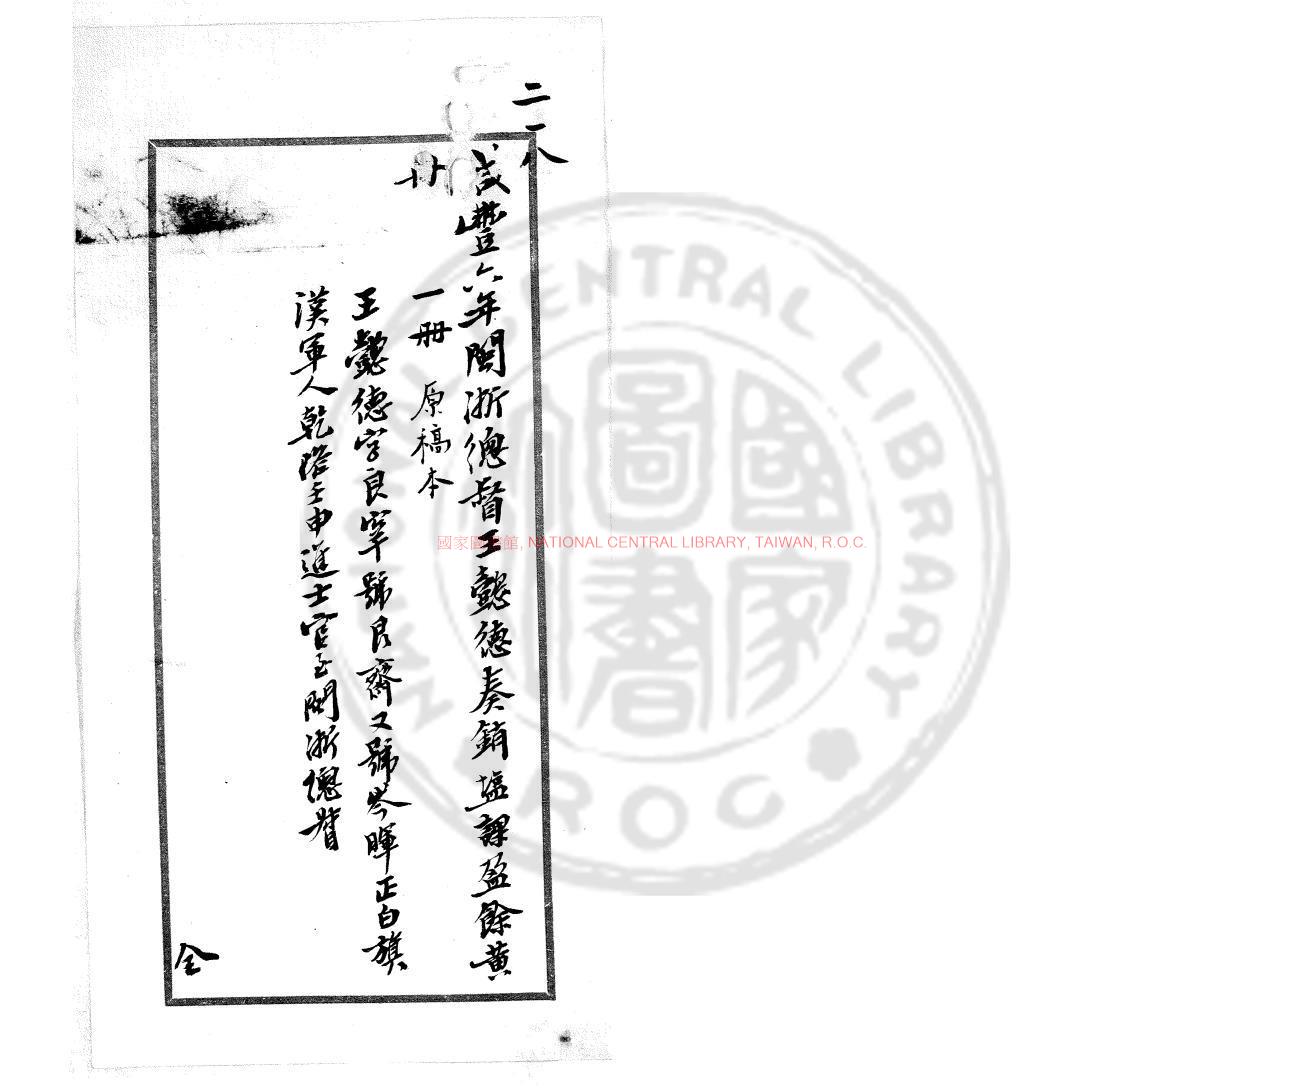 二一八
咸豐六年閩浙總督王懿德奏銷塩課盈餘黃
冊
一册 原稿本
王懿德字良宰號良齋又號岑暉正白旗
漢軍人乾隆壬申進士官至閩浙總督
全
國家圖書館, NATIONAL CENTRAL LIBRARY, TAIWAN, R.O.C.
NATIONAL CENTRAL LIBRARY
ROC
國家圖書